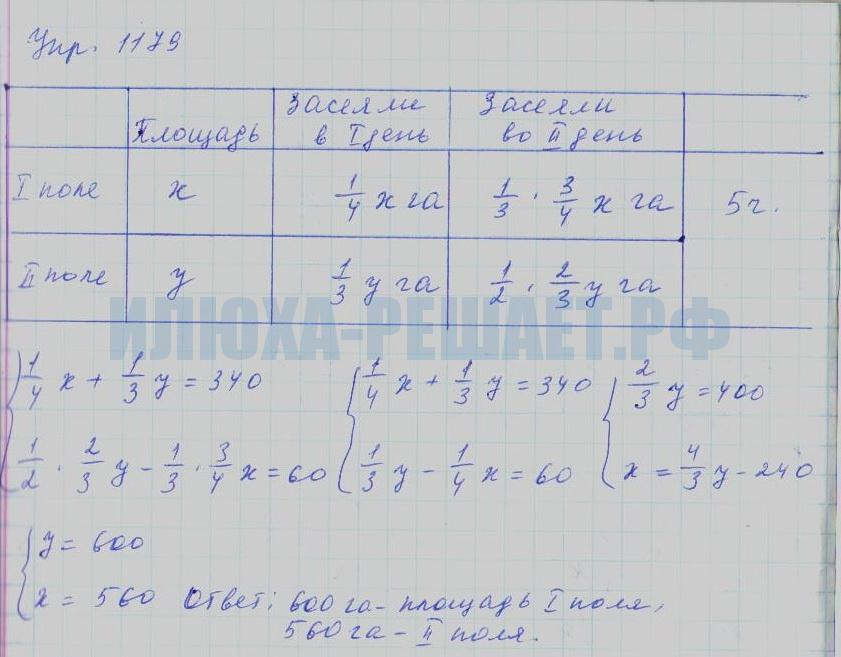 Упр. 1179
Площадь Засеяли в I день Засеяли во II день
I поле x 1/4 x га 1/3 · 3/4 x га 5 г.
II поле y 1/3 y га 1/2 · 2/3 y га
ИЛЮХА-РЕШАЕТ.РФ
{ 1/4 x + 1/3 y = 340 { 1/4 x + 1/3 y = 340 { 2/3 y = 400
1/2 · 2/3 y - 1/3 · 3/4 x = 60 1/3 y - 1/4 x = 60 x = 4/3 y - 240
{ y = 600
x = 560 Ответ: 600 га - площадь I поля,
560 га - II поля.